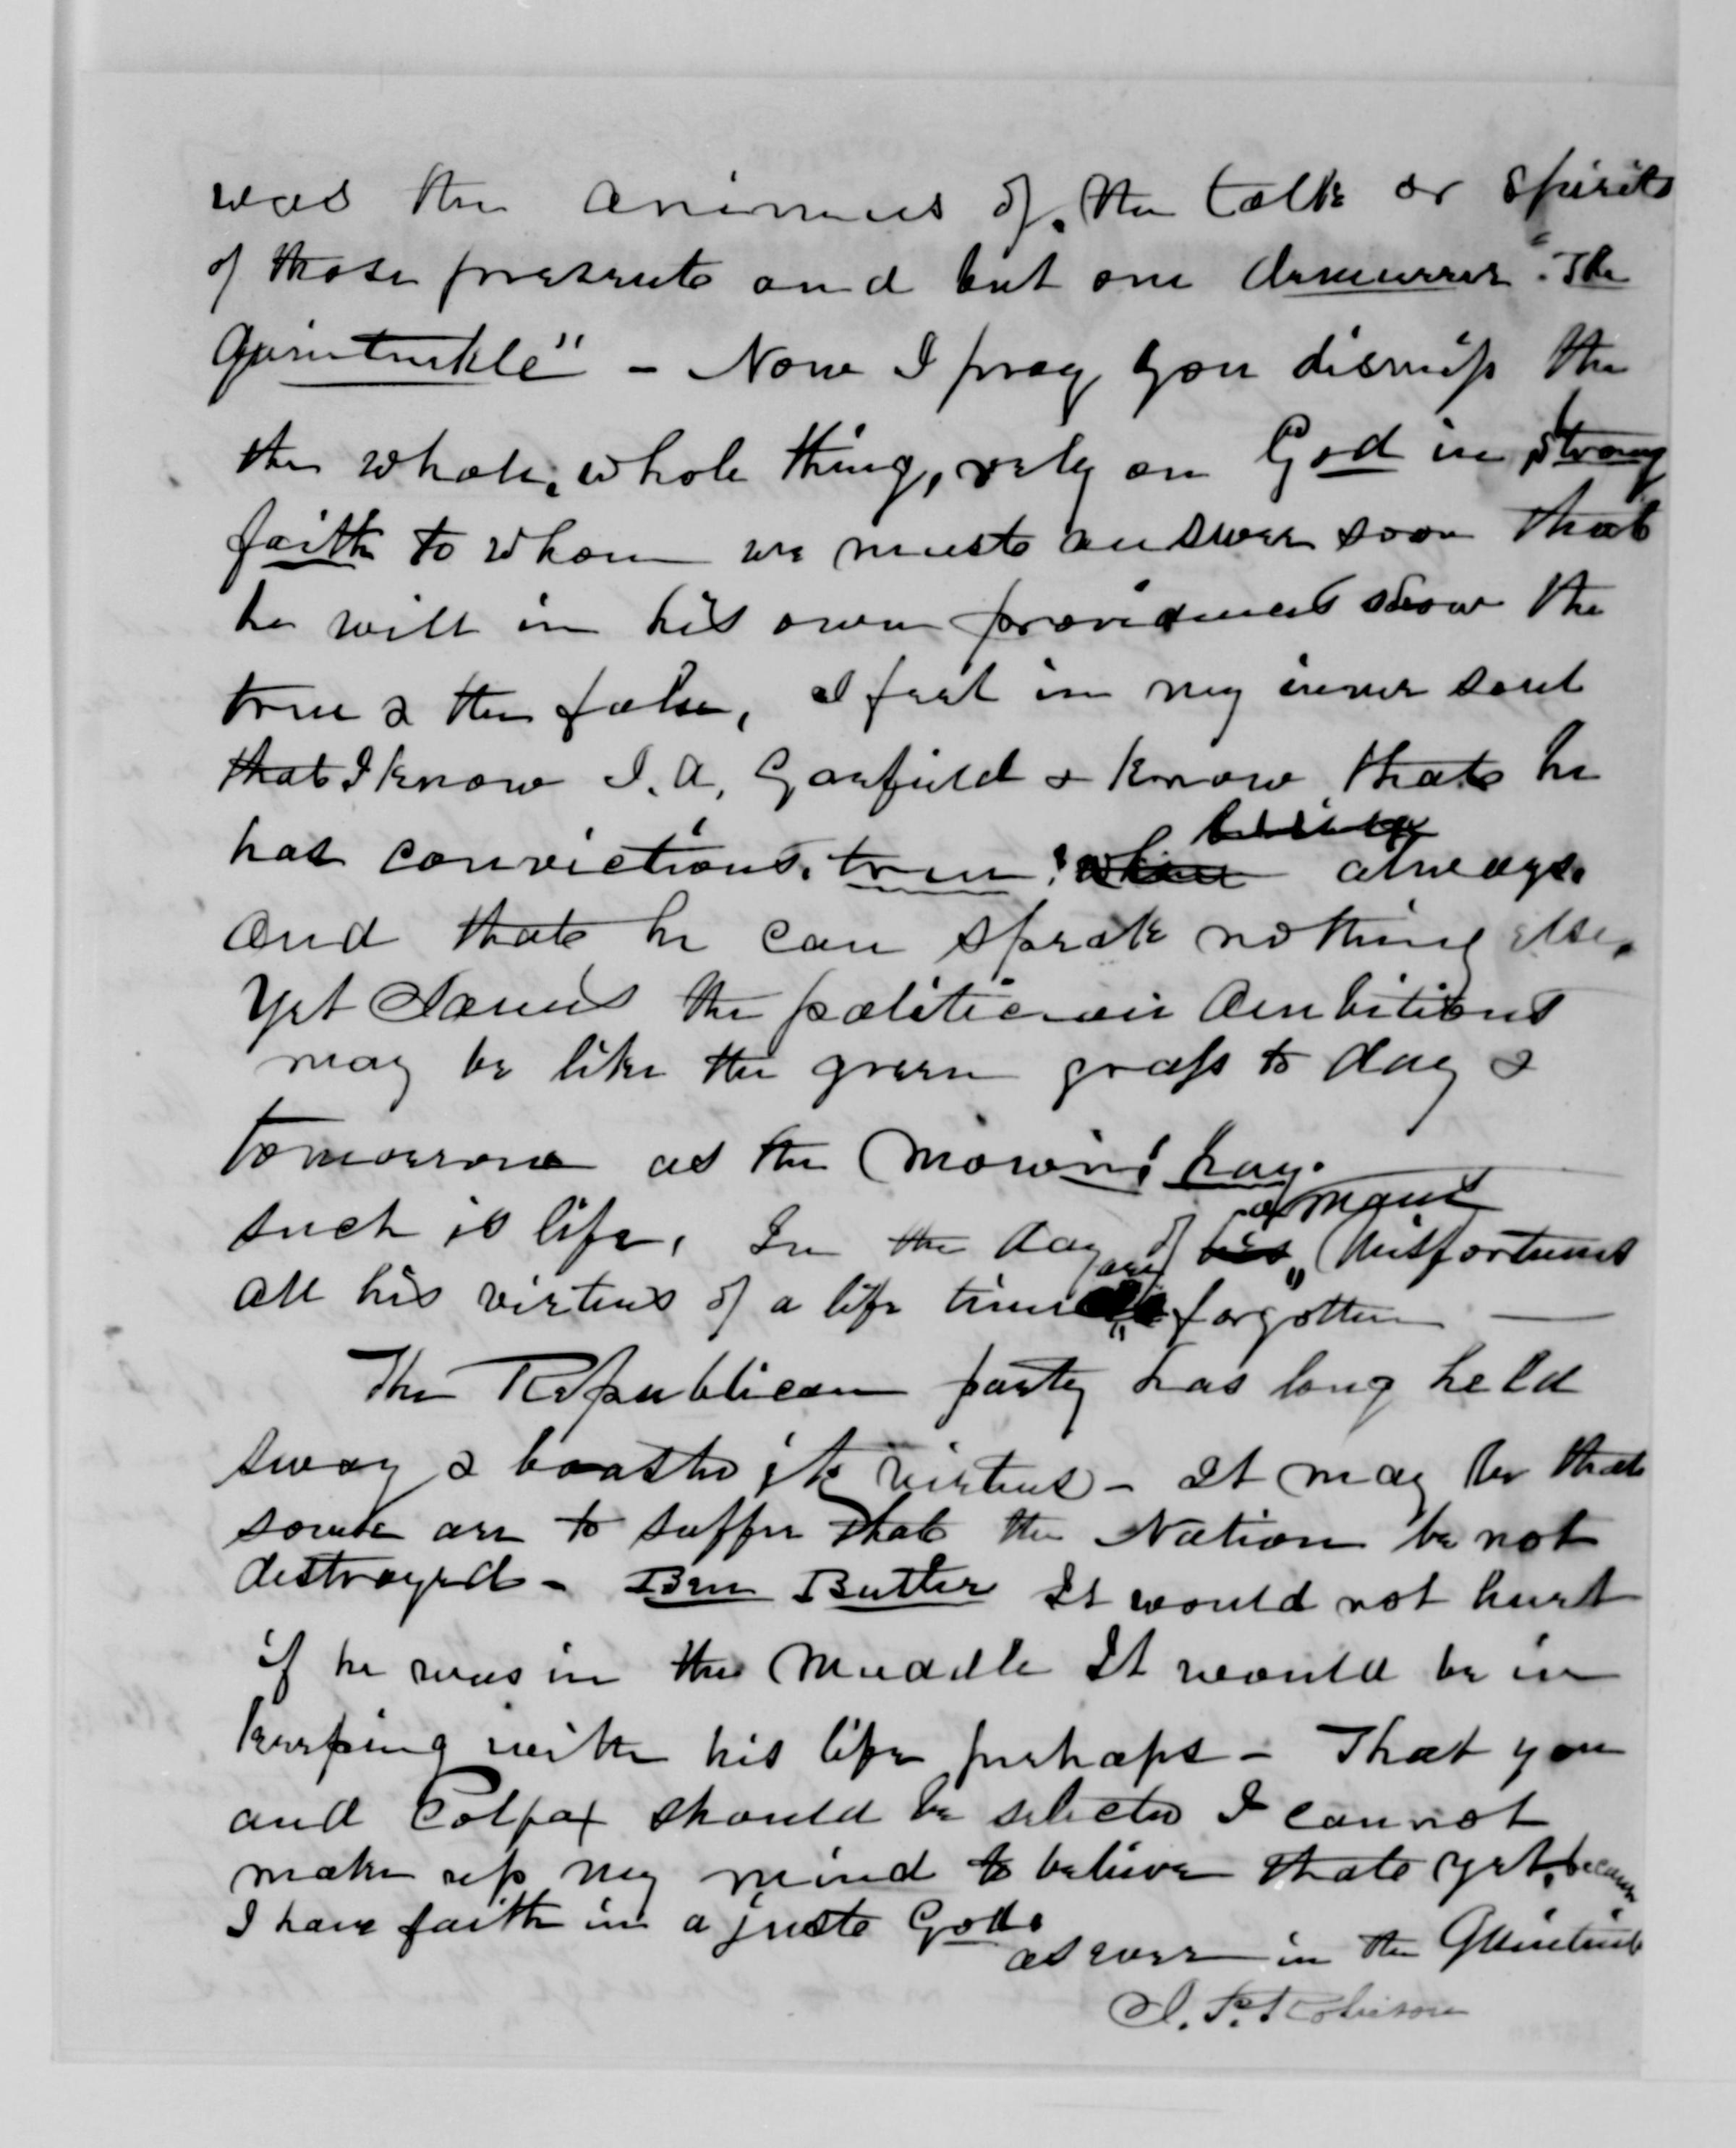 was the animus of the talk or spirit
of those present and but one demurrer "The
Quintinkle" - Now I pray you dismiss the
the whole, whole thing, rely on God in strong
faith to whom we must answer soon that
he will in his own providences show the
true & the false, I feel in my inner soul
that I know J. A. Garfield & know that he
has convictions, true, always.
and that he can speak nothing else,
Yet James the politician ambitions
may be like the green grass to day &
tomorrow as the mown hay.
such is life. In the day of a mans misfortunes
all his virtues of a life time are forgotten —
The Republican party has long held
sway & boasted its virtues - It may be that
some are to suffer that the Nation be not
destroyed - Ben Butler It would not hurt
if he was in the muddle It would be in
keeping with his life perhaps - That you
and Colfax should be selected I cannot
make up my mind to believe that yet, because
I have faith in a just God.
as ever in the Quintink
J. P. Robison